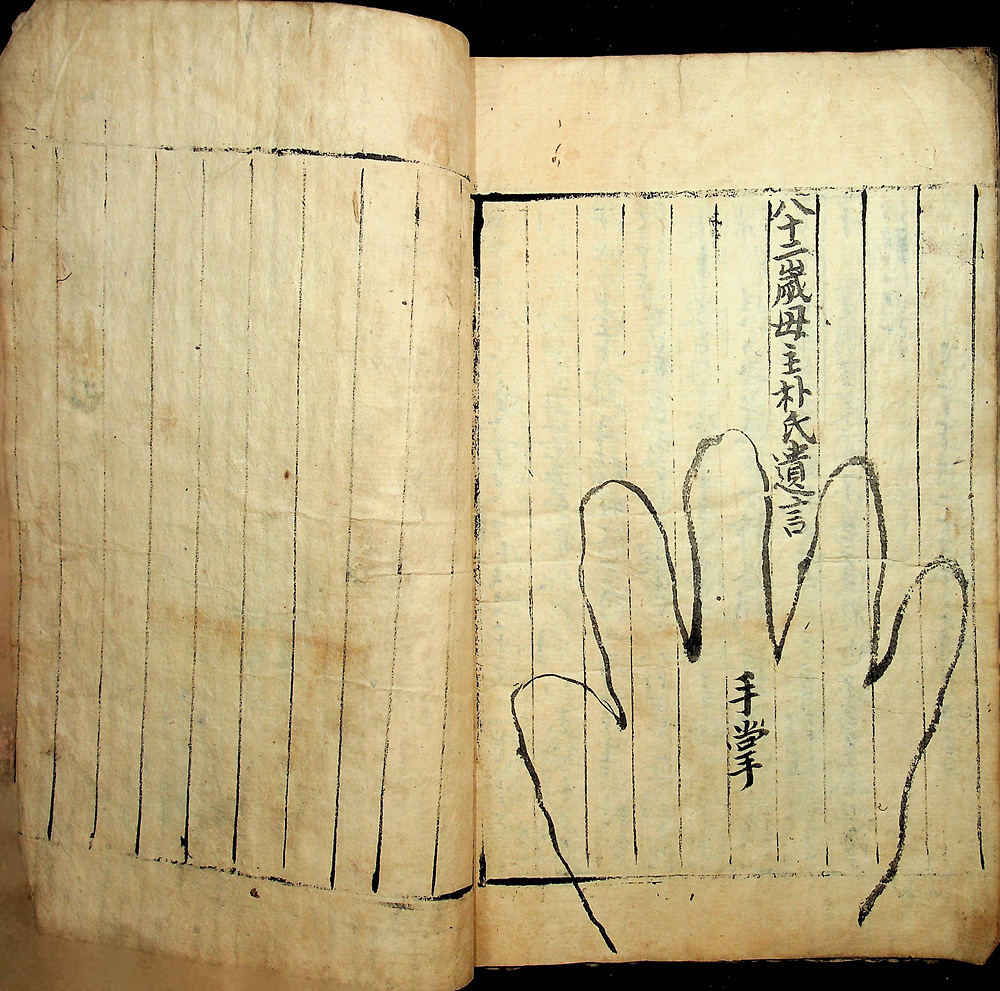 八十二歲母主朴氏遺言
手掌